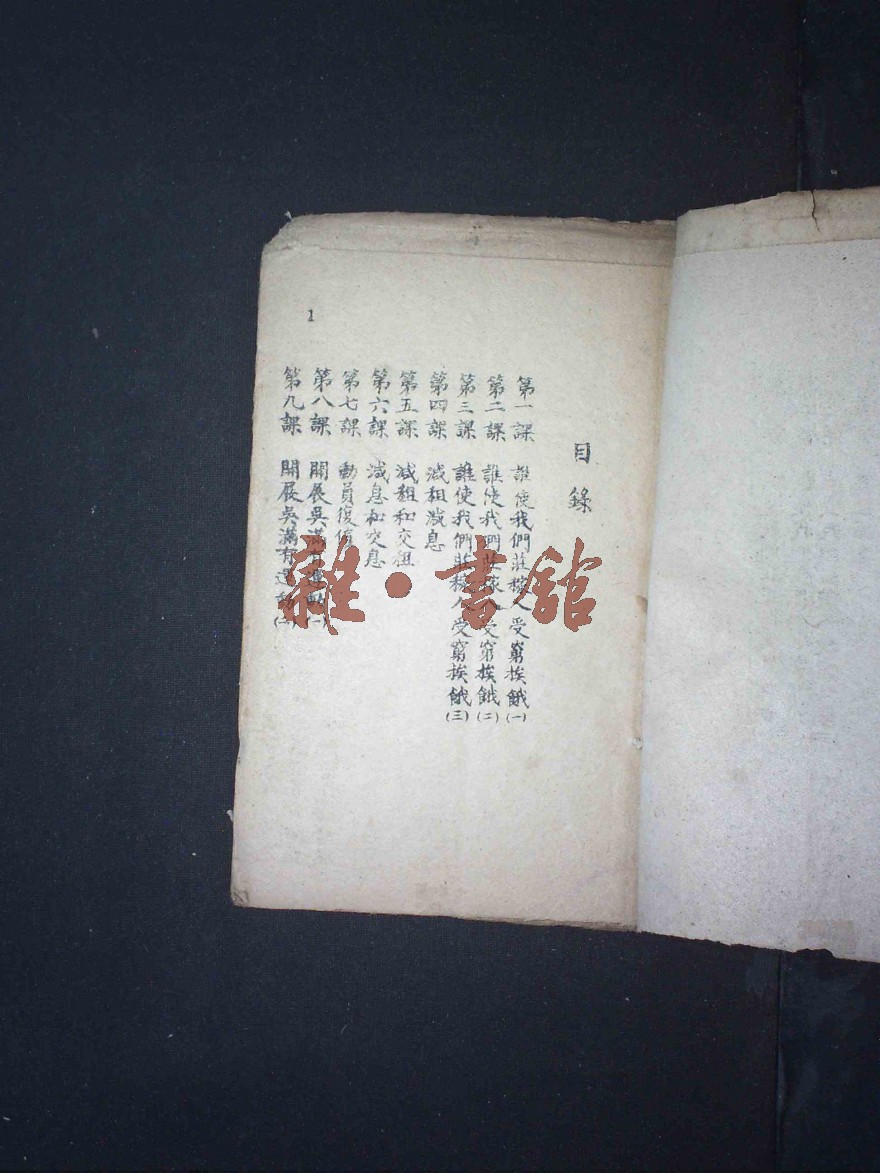 目錄
第一課 誰使我們莊稼人受窮挨餓(一)
第二課 誰使我們莊稼人受窮挨餓(二)
第三課 誰使我們莊稼人受窮挨餓(三)
第四課 減租減息
第五課 減租和交租
第六課 減息和交息
第七課 動員復
第八課 開展吳滿有運動(一)
第九課 開展吳滿有運動(二)
1
雜·書館